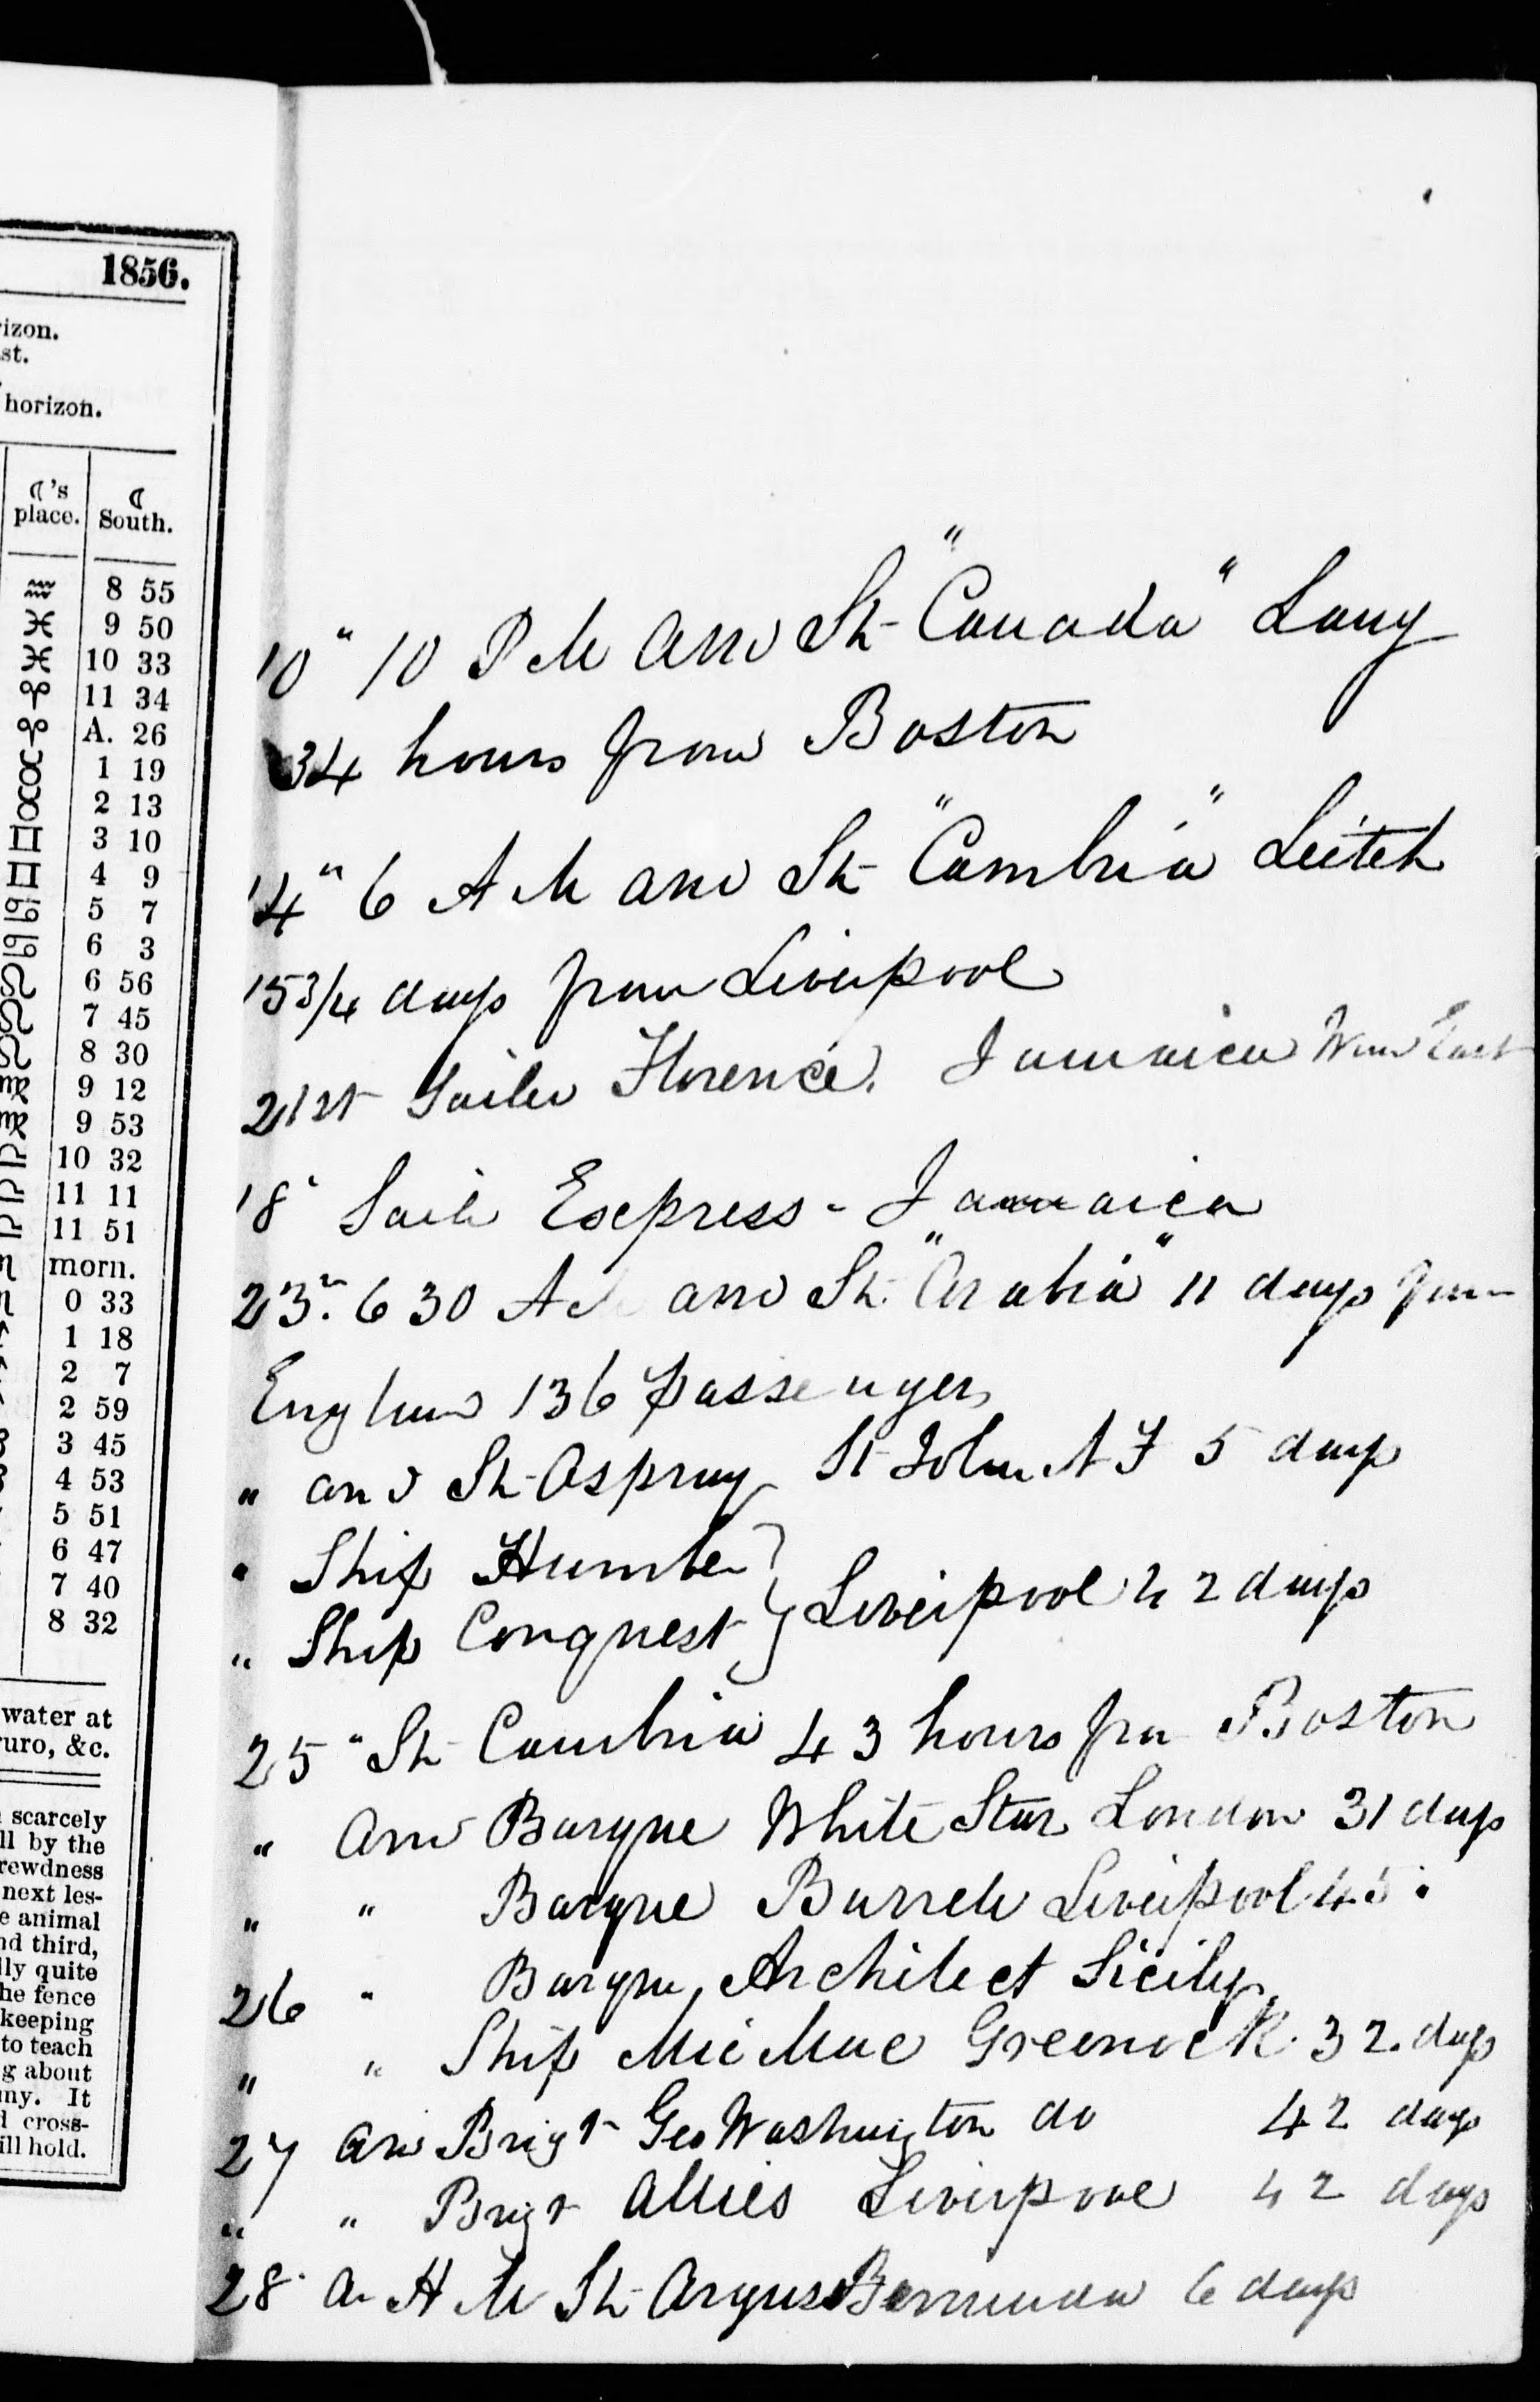 1856.
rizon.
st.
horizon.
☾'s place. ☾ South.
♒ 8 55
♓ 9 50
♓ 10 33
♈ 11 34
♈ A. 26
♉ 1 19
♉ 2 13
♊ 3 10
♊ 4 9
♋ 5 7
♋ 6 3
♌ 6 56
♌ 7 45
♌ 8 30
♍ 9 12
♍ 9 53
♎ 10 32
♎ 11 11
♎ 11 51
morn.
0 33
1 18
2 7
2 59
3 45
4 53
5 51
6 47
7 40
8 32
water at
ruro, &c.
scarcely
ll by the
rewdness
next les-
e animal
nd third,
lly quite
he fence
keeping
to teach
g about
ny. It
d cross-
ill hold.
10" 10 P M arrd St "Canada" Lang
34 hours from Boston
14" 6 A M arrd St "Cambria" Leitch
15 3/4 days from Liverpool
21st Sailed Florence. Jamaica Wind East
18 Saild Express - Jamaica
23. 6 30 A arrd St. "Arabia" 11 days from
England 136 passengers
" arrd St Aspray St John N F 5 days
" Ship Humber }
" Ship Conquest } Liverpool 42 days
25" St Cambria 43 hours frm Boston
" Arrd Barque White Star London 31 days
" " Barque Burrell Liverpool 45 "
26 " Barque Architect Sicily
" " Ship Mic Mac Greenock 32 days
27 arrd Brigt Geo Washington do 42 days
" " Brigt Allies Liverpool 42 days
28 Ar H M St Argus Bermuda 6 days